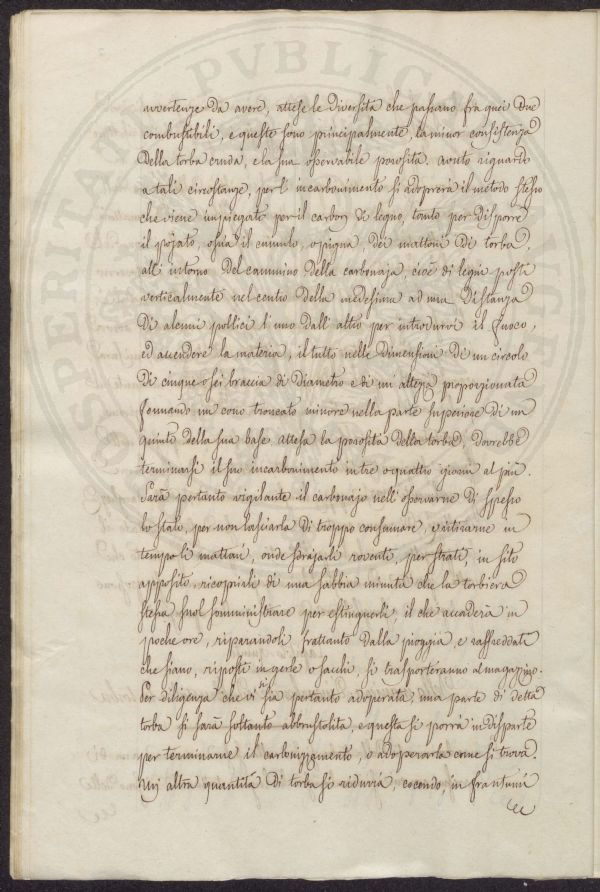 avvertenze da avere, attese le diversità che passano fra quei due
combustibili, e queste sono principalmente, la minor consistenza
della torba cruda, e la sua osservabile porosità. avuto riguardo
a tali circostanze, per l'incarbonimento si adoprerà il metodo stesso
che viene impiegato per il carbon di legno, tanto per disporre
il pojato, ossia il cumulo, o pigna dei mattoni di torba,
all'intorno del cammino della carbonaja, cioè di legni posti
verticalmente nel centro della medesima ad una distanza
di alcuni pollici l'uno dall'altro per introdurvi il fuoco,
ed accendere la materia, il tutto nelle dimensioni di un circolo
di cinque o sei braccia di diametro e di un'altezza proporzionata
formando un cono troncato minore nella parte superiore di un
quinto della sua base attesa la porosità della torba, dovrebbe
terminarsi il suo incarbonimento in tre o quattro giorni al più.
Sarà pertanto vigilante il carbonajo nell'osservarne di spesso
lo stato, per non lasciarla di troppo consumare, e ritirarne in
tempo li mattoni, onde sdrajarli roventi, per strati, in sito
apposito, ricoprirli di una sabbia minuta che la torbiera
stessa suol somministrare per estinguerli, il che accaderà in
poche ore, riparandoli frattanto dalla pioggia, e raffreddati
che siano, riposti in gerle o sacchi, si trasporteranno al magazzino.
Per diligenza che vi sia pertanto adoperata, una parte di detta
torba si sarà soltanto abbrustolita, e questa si porrà in disparte
per terminarne il carbonizzamento, o adoperarla come si trova.
Un'altra quantità di torba si ridurrà, cocendo, in frantumi
PROSPERITATI PVBLICAE